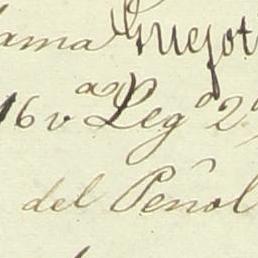 ama Guejot
16 v Leg° 2°
del Peñol